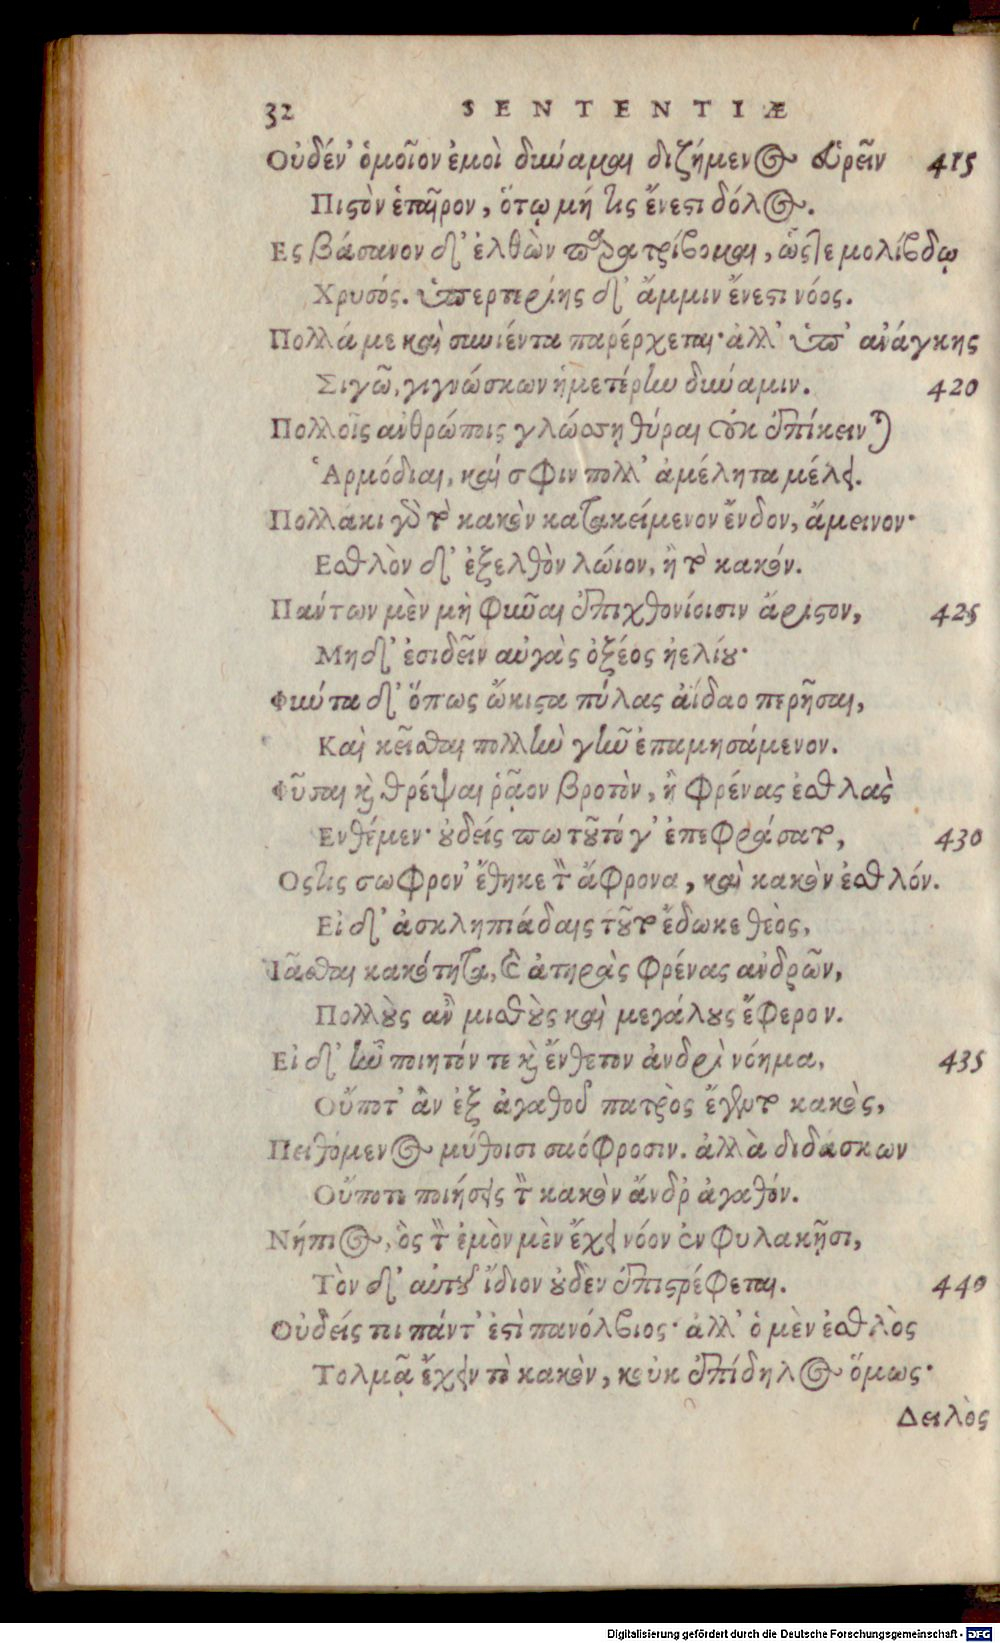 32 SENTENTIÆ
Οὐδέν' ὁμοῖον ἐμοὶ δύναμαι διζήμενος εὑρεῖν 415
Πιστὸν ἑταῖρον, ὅτῳ μή τις ἔνεστι δόλος.
Ες βάσανον δ' ἐλθὼν παρατρίβομαι, ὥστε μολίβδῳ
Χρυσός. ὑπερτερίης δ' ἄμμιν ἔνεστι νόος.
Πολλά με καὶ συνιέντα παρέρχεται· ἀλλ' ὑπ' ἀνάγκης
Σιγῶ, γιγνώσκων ἡμετέρην δύναμιν. 420
Πολλοῖς ἀνθρώποις γλώσσῃ θύραι οὐκ ἐπίκεινται
Ἁρμόδιαι, καί σφιν πολλ' ἀμέλητα μέλει.
Πολλάκι γὰρ τὸ κακὸν κατακείμενον ἔνδον, ἄμεινον·
Εσθλὸν δ' ἐξελθὸν λώιον, ἢ τὸ κακόν.
Πάντων μὲν μὴ φῦναι ἐπιχθονίοισιν ἄριστον, 425
Μηδ' ἐσιδεῖν αὐγὰς ὀξέος ἠελίου·
Φύντα δ' ὅπως ὤκιστα πύλας ἀίδαο περῆσαι,
Καὶ κεῖσθαι πολλὴν γῆν ἐπαμησάμενον.
Φῦσαι καὶ θρέψαι ῥᾷον βροτὸν, ἢ φρένας ἐσθλὰς
Ενθέμεν· οὐδείς πω τοῦτό γ' ἐπεφράσατο, 430
Οστις σωφρον' ἔθηκε τὸν ἄφρονα, καὶ κακὸν ἐσθλόν.
Εἰ δ' ἀσκληπιάδαις τοῦτο ἔδωκε θεὸς,
Ἰᾶσθαι κακότητα, καὶ ἀτηρὰς φρένας ἀνδρῶν,
Πολλοὺς ἂν μισθοὺς καὶ μεγάλους ἔφερον.
Εἰ δ' ἦν ποιητόν τε καὶ ἔνθετον ἀνδρὶ νόημα, 435
Οὔποτ' ἂν ἐξ ἀγαθοῦ πατρὸς ἔγεντο κακὸς,
Πειθόμενος μύθοισι σαόφροσιν. ἀλλὰ διδάσκων
Οὔποτε ποιήσεις τὸν κακὸν ἄνδρ' ἀγαθόν.
Νήπιος, ὃς τὸν ἐμὸν μὲν ἔχει νόον ἐν φυλακῇσι,
Τὸν δ' αὑτοῦ ἴδιον οὐδὲν ἐπιστρέφεται. 440
Οὐδείς τοι πάντ' ἐστὶ πανόλβιος· ἀλλ' ὁ μὲν ἐσθλὸς
Τολμᾷ ἔχειν τὸ κακὸν, κοὐκ ἐπίδηλος ὅμως·
Δειλὸς
Digitalisierung gefördert durch die Deutsche Forschungsgemeinschaft - DFG